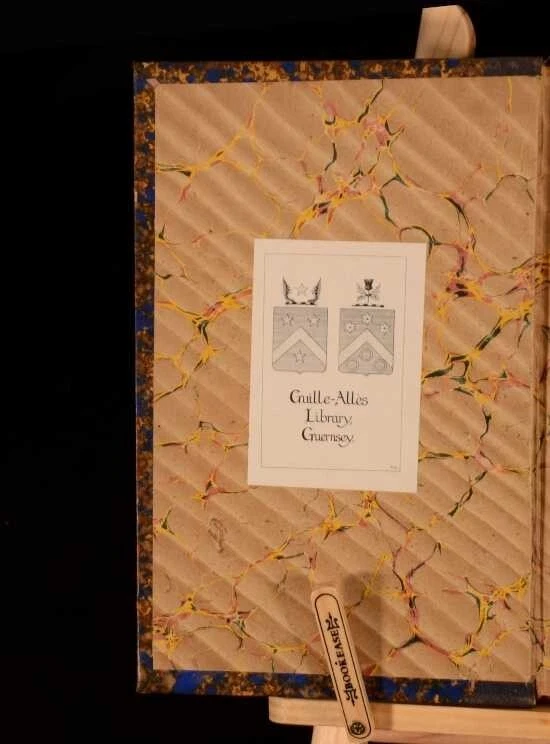 Guille-Allès
Library,
Guernsey.
BOOKEASEL